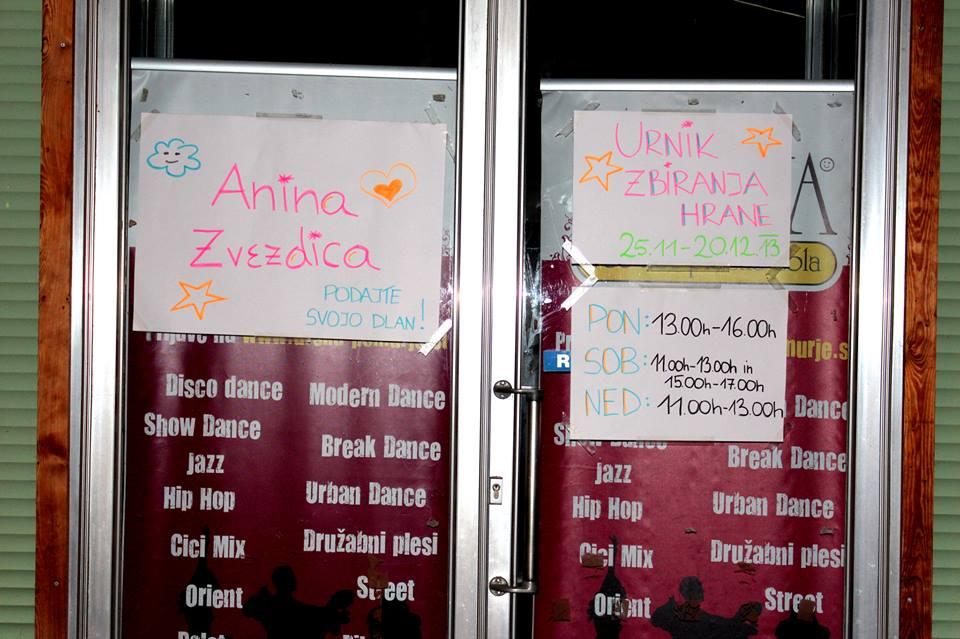 Anina
Zvezdica
PODAJTE
SVOJO DLAN!
Disco dance
Modern Dance
Show Dance
Break Dance
jazz
Hip Hop
Urban Dance
Cici Mix
Družabni plesi
Orient
Street
URNIK
ZBIRANJA
HRANE
25.11-20.12.13
PON: 13.00h-16.00h
SOB: 11.00h-13.00h in
15.00h-17.00h
NED: 11.00h-13.00h
Dance
Show Dance
Break Dance
jazz
Hip Hop
Urban Dance
Cici Mix
Družabni plesi
Orient
Street